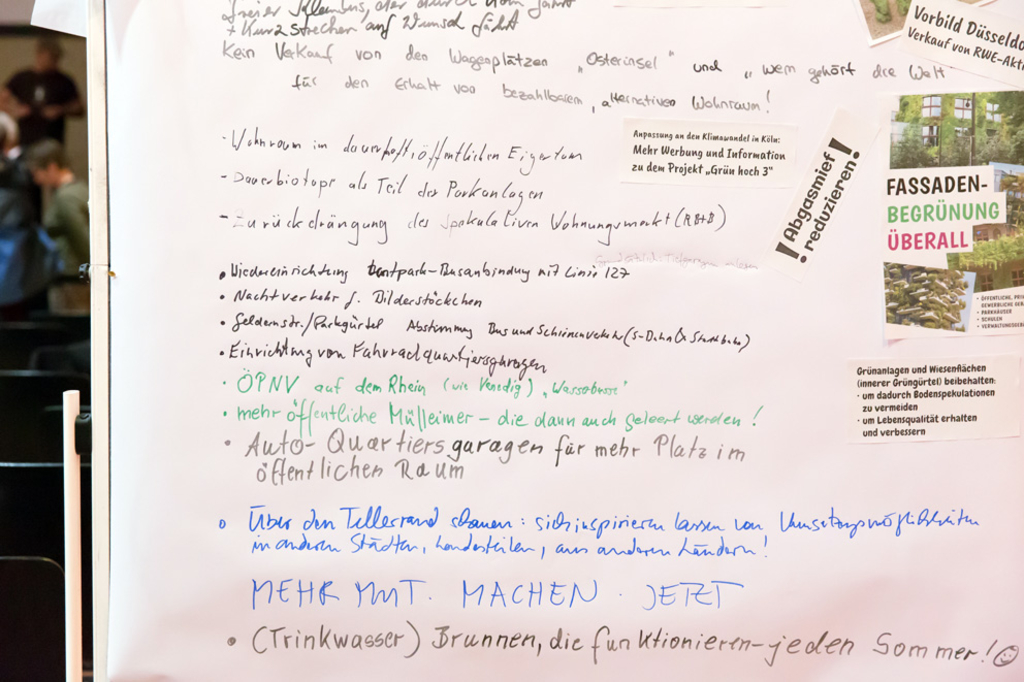 freier Kleinbus, der durch vom fährt
+ Kurzstrecken auf Wunsch fährt
Kein Verkauf von den Wagenplätzen „Osterinsel" und „wem gehört die Welt
für den Erhalt von bezahlbarem, alternativen Wohnraum!
- Wohnraum in dauerhaft, öffentlichen Eigentum
- Dauerbiotope als Teil der Parkanlagen
- Zurückdrängung des spekulativen Wohnungsmarkt (
• Wiedereinrichtung Busanbindung mit Linie 127
• Nachtverkehr f. Bilderstöckchen
• Geldernstr./Parkgürtel Abstimmung Bus und Schienenverkehr (S-Bahn & Stadtbahn)
• Einrichtung von Fahrradquartiersgaragen
• ÖPNV auf dem Rhein (wie Venedig) „Wasserbusse"
• mehr öffentliche Mülleimer – die dann auch geleert werden!
• Auto-Quartiersgaragen für mehr Platz im
öffentlichen Raum
o Über den Tellerrand schauen: sich inspirieren lassen von Umsetzungsmöglichkeiten
in anderen Städten, Landesteilen, aus anderen Ländern!
MEHR MUT. MACHEN. JETZT
• (Trinkwasser) Brunnen, die funktionieren – jeden Sommer! ☺
Vorbild Düsseldo
Verkauf von RWE-Akti
Anpassung an den Klimawandel in Köln:
Mehr Werbung und Information
zu dem Projekt „Grün hoch 3"
! Abgasmief !
! reduzieren!
FASSADEN-
BEGRÜNUNG
ÜBERALL
• ÖFFENTLICHE, PRI
GEWERBLICHE GE
• PARKHÄUSER
• SCHULEN
• VERWALTUNGSGEB
Grünanlagen und Wiesenflächen
(innerer Grüngürtel) beibehalten:
• um dadurch Bodenspekulationen
zu vermeiden
• um Lebensqualität erhalten
und verbessern